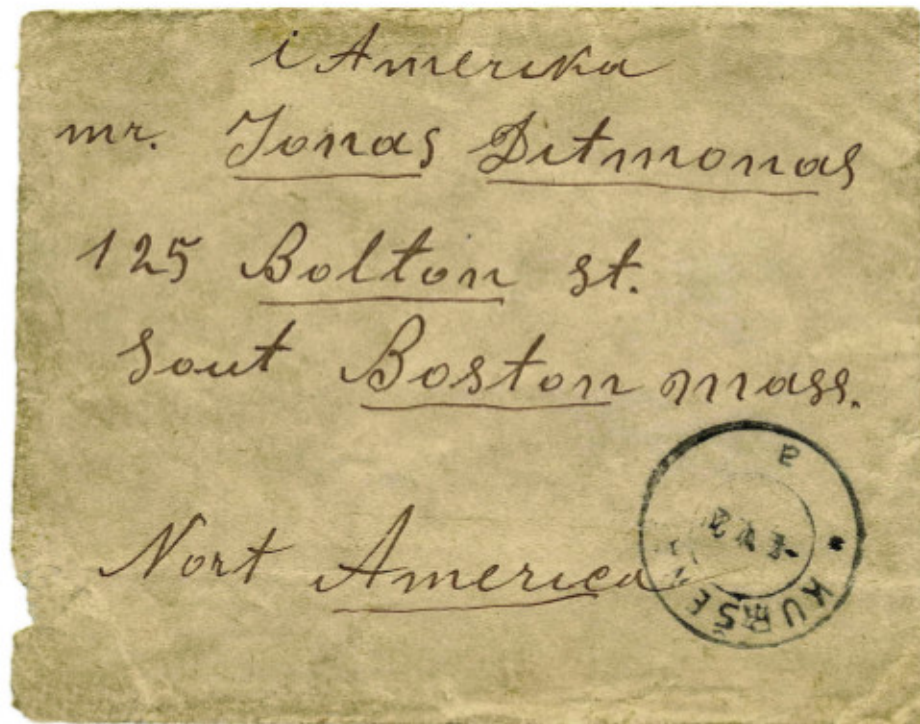 i Amerika
mr. Jonas Ditmonas
125 Bolton st.
Sout Boston mass.
Nort America
a
KURŠE